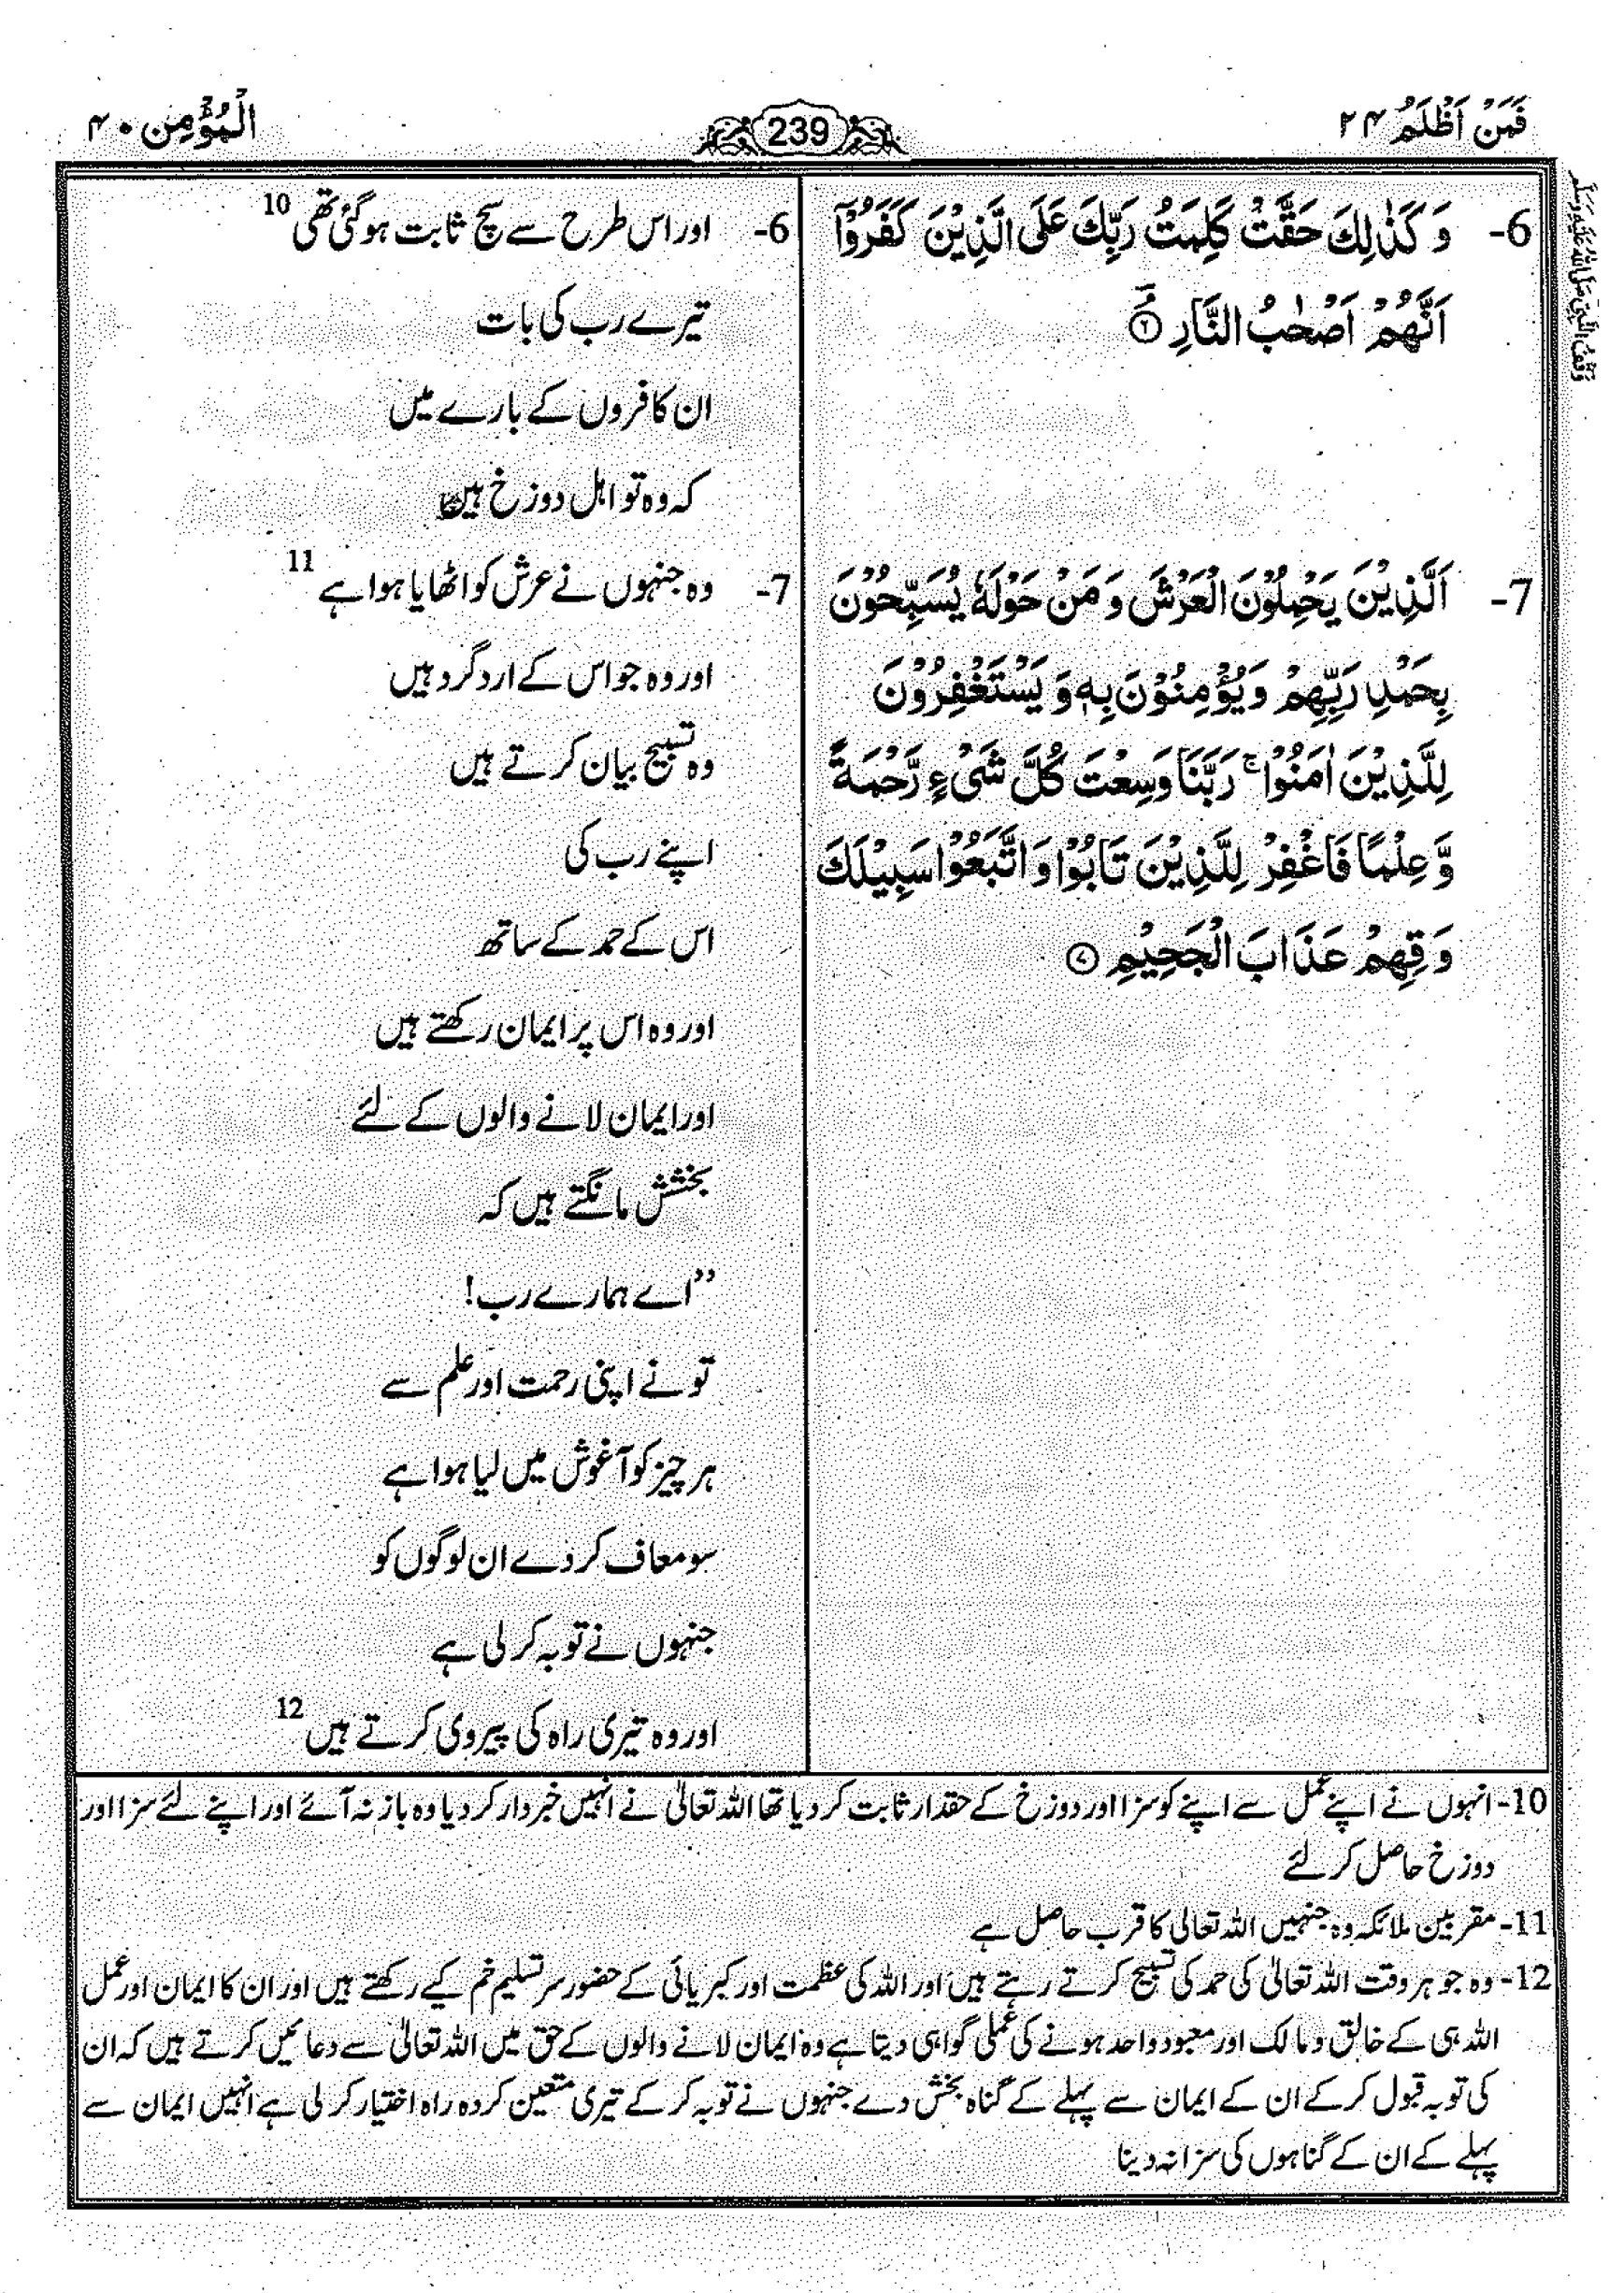 فَمَنْ اَظْلَمُ ۲۴
239
الْمُؤْمِن ۴۰
وقف النبي صلى الله عليه وسلم
6- وَ كَذٰلِكَ حَقَّتْ كَلِمَتُ رَبِّكَ عَلَى الَّذِيْنَ كَفَرُوْۤا
اَنَّهُمْ اَصْحٰبُ النَّارِ ۘ ۶
7- اَلَّذِيْنَ يَحْمِلُوْنَ الْعَرْشَ وَ مَنْ حَوْلَهٗ يُسَبِّحُوْنَ
بِحَمْدِ رَبِّهِمْ وَ يُؤْمِنُوْنَ بِهٖ وَ يَسْتَغْفِرُوْنَ
لِلَّذِيْنَ اٰمَنُوْا ۚ رَبَّنَا وَسِعْتَ كُلَّ شَيْءٍ رَّحْمَةً
وَّ عِلْمًا فَاغْفِرْ لِلَّذِيْنَ تَابُوْا وَ اتَّبَعُوْا سَبِيْلَكَ
وَ قِهِمْ عَذَابَ الْجَحِيْمِ ۷
6- اور اس طرح سے سچ ثابت ہو گئی تھی 10
تیرے رب کی بات
ان کافروں کے بارے میں
کہ وہ تو اہل دوزخ ہیں
7- وہ جنہوں نے عرش کو اٹھایا ہوا ہے 11
اور وہ جو اس کے ارد گرد ہیں
وہ تسبیح بیان کرتے ہیں
اپنے رب کی
اس کے حمد کے ساتھ
اور وہ اس پر ایمان رکھتے ہیں
اور ایمان لانے والوں کے لئے
بخشش مانگتے ہیں کہ
”اے ہمارے رب!
تو نے اپنی رحمت اور علم سے
ہر چیز کو آغوش میں لیا ہوا ہے
سو معاف کر دے ان لوگوں کو
جنہوں نے توبہ کر لی ہے
اور وہ تیری راہ کی پیروی کرتے ہیں 12
10- انہوں نے اپنے عمل سے اپنے کو سزا اور دوزخ کے حقدار ثابت کر دیا تھا اللہ تعالیٰ نے انہیں خبردار کر دیا وہ باز نہ آئے اور اپنے لئے سزا اور
دوزخ حاصل کر لئے
11- مقربین ملائکہ وہ جنہیں اللہ تعالیٰ کا قرب حاصل ہے
12- وہ جو ہر وقت اللہ تعالیٰ کی حمد کی تسبیح کرتے رہتے ہیں اور اللہ کی عظمت اور کبریائی کے حضور سر تسلیم خم کیے رکھتے ہیں اور ان کا ایمان اور عمل
اللہ ہی کے خالق و مالک اور معبود واحد ہونے کی عملی گواہی دیتا ہے وہ ایمان لانے والوں کے حق میں اللہ تعالیٰ سے دعائیں کرتے ہیں کہ ان
کی توبہ قبول کر کے ان کے ایمان سے پہلے کے گناہ بخش دے جنہوں نے توبہ کر کے تیری متعین کردہ راہ اختیار کر لی ہے انہیں ایمان سے
پہلے کے ان کے گناہوں کی سزا نہ دینا